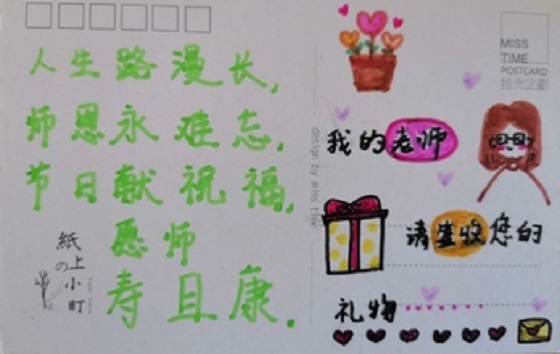 人生路漫长,
师恩永难忘,
节日献祝福,
愿师
寿且康.
紙上の小町
design by miss time
MISS
TIME
POSTCARD
拾光企劃
我的老师
请签收您的
礼物……